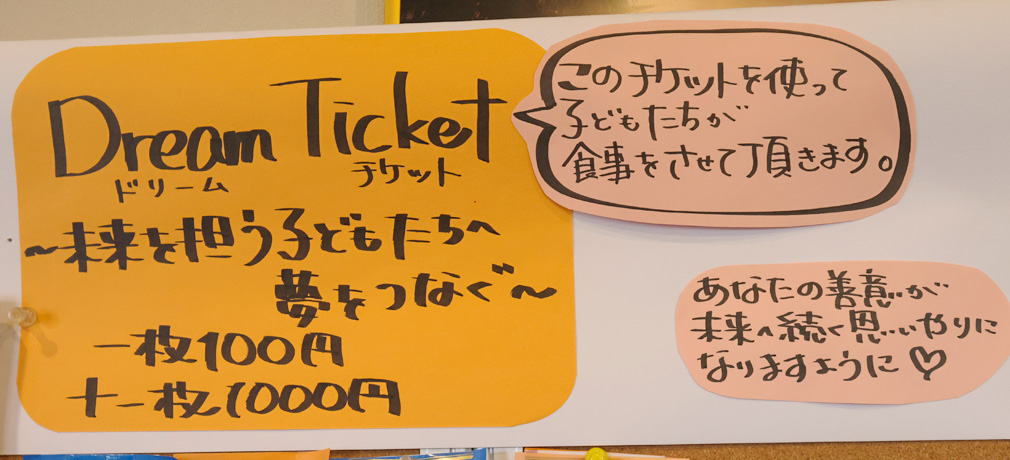 Dream Ticket
ドリーム チケット
〜未来を担う子どもたちへ
夢をつなぐ〜
一枚100円
十一枚1000円
このチケットを使って
子どもたちが
食事をさせて頂きます。
あなたの善意が
未来へ続く思いやりに
なりますように♡